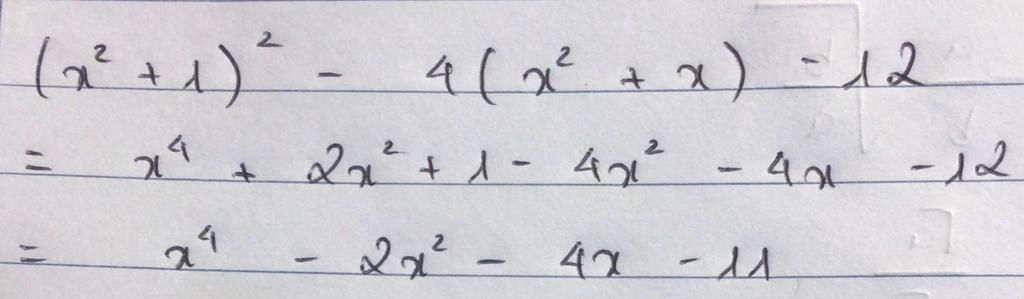 (x² + 1)² - 4(x² + x) - 12
= x⁴ + 2x² + 1 - 4x² - 4x - 12
= x⁴ - 2x² - 4x - 11